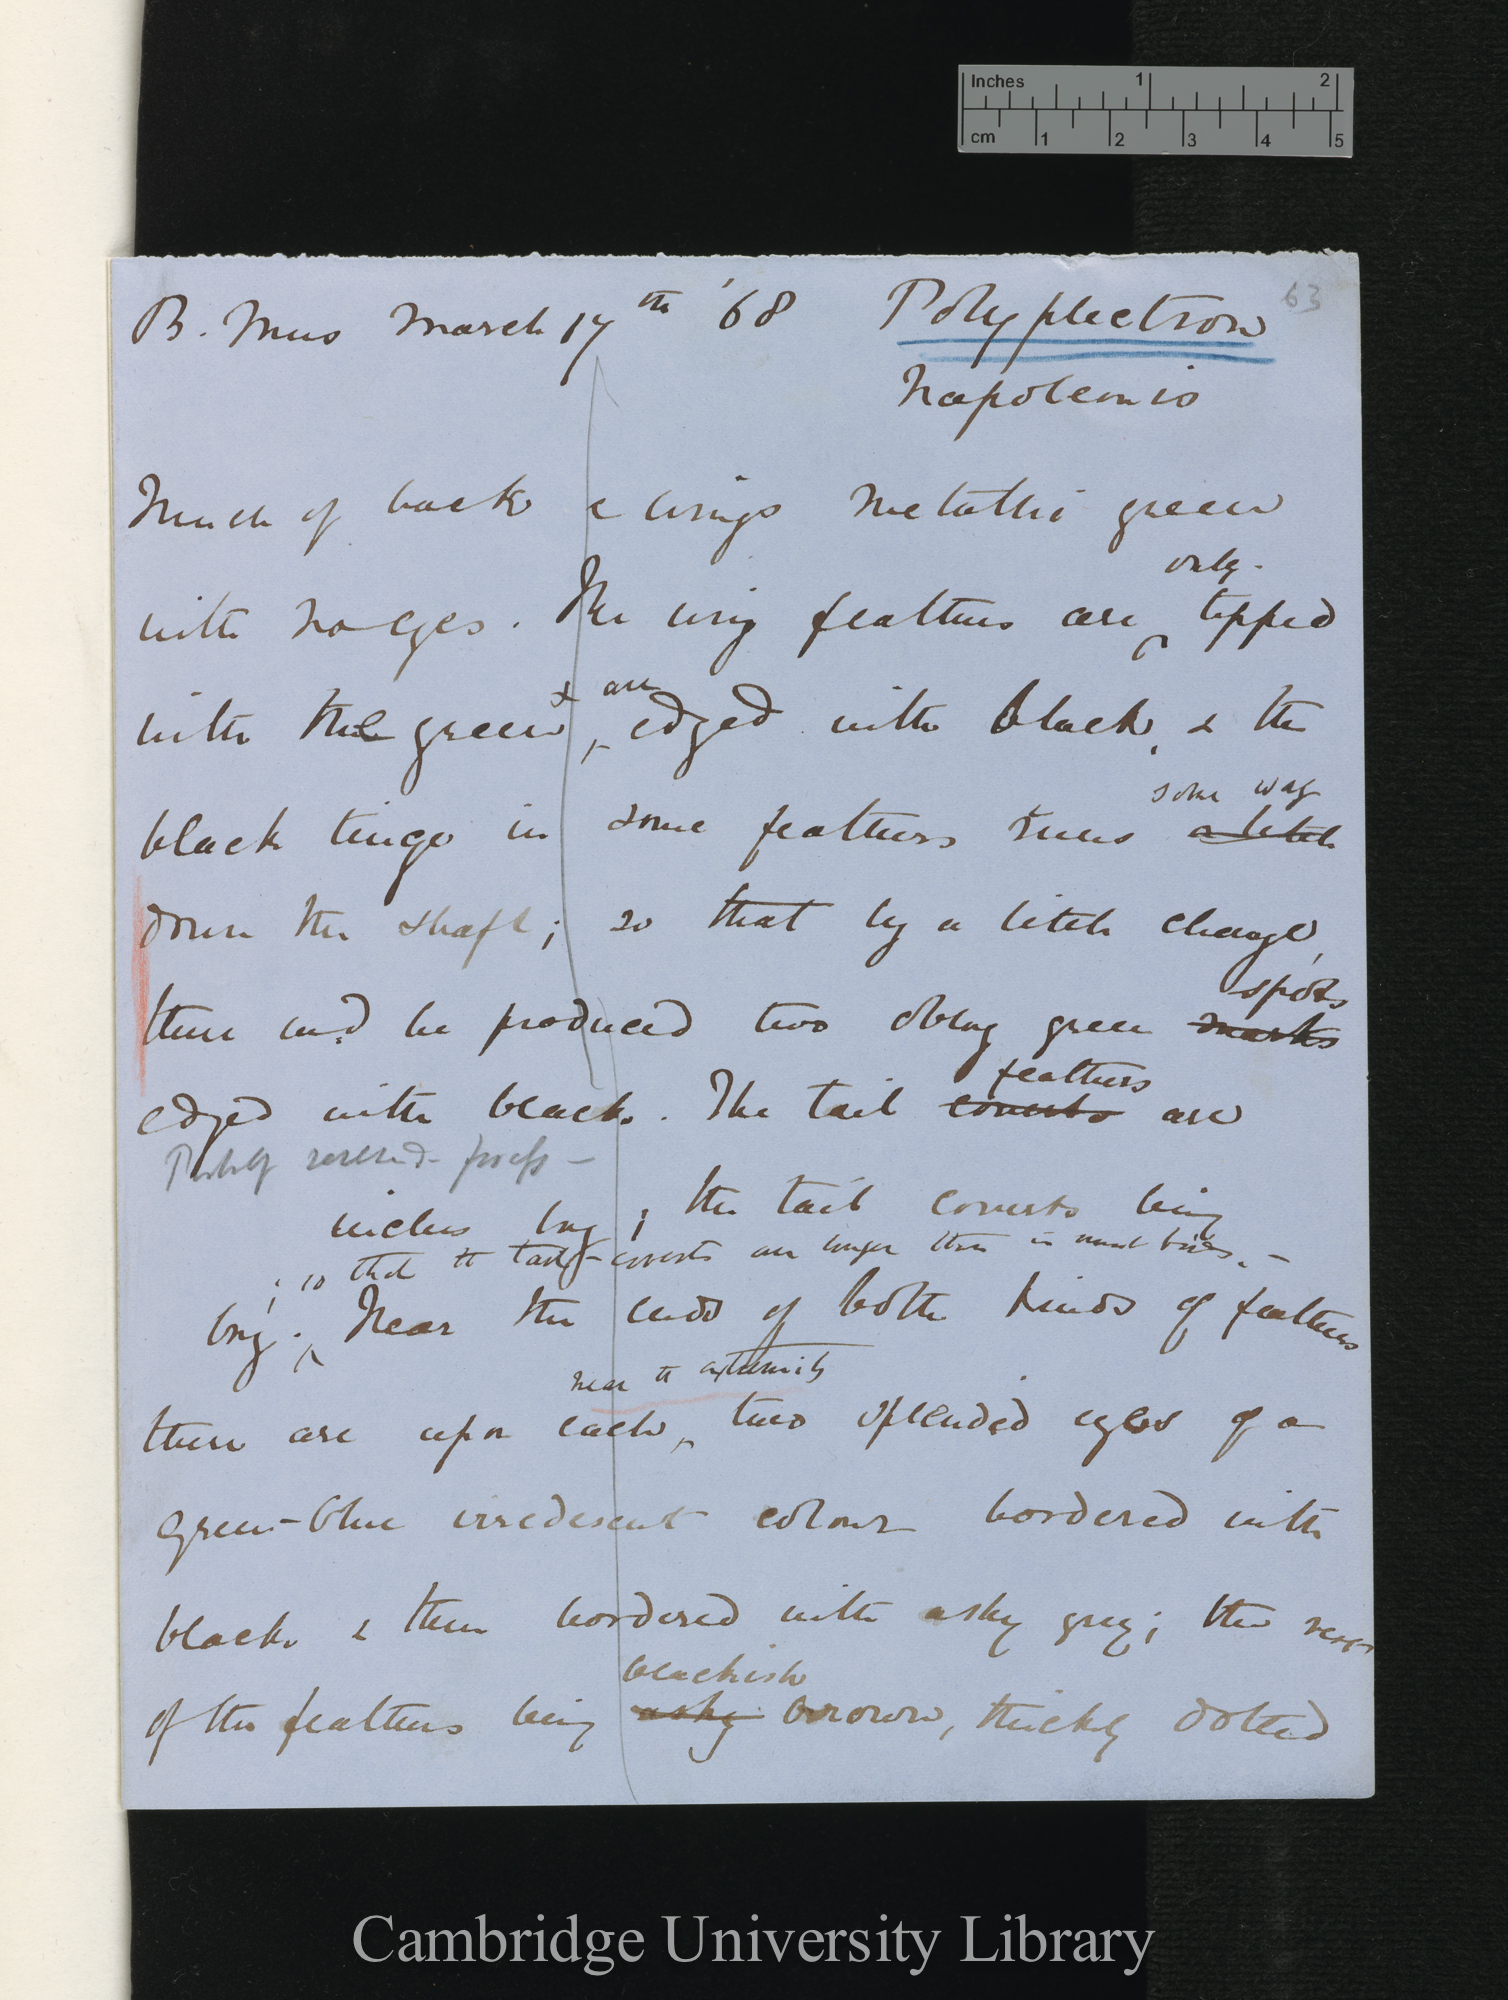 Inches 1 2
cm 1 2 3 4 5
63
B. Mus March 17th '68 Polyplectron
Napoleonis
Much of back & wings metallic green
only.
with no eyes. The wing feathers are tipped
& are
with the green, edged with black, & the
some way
black tinge in some feathers runs a little
down the shaft; so that by a little change,
spots
there wd. be produced two oblong green marks
feathers
edged with black. The tail coverts are
inches long; the tail coverts being
; so that the tail-coverts are longer than in most birds. –
long. Near the ends of both kinds of feathers
near the extremity
there are upon each, two splendid eyes of a
green-blue irredescent colour bordered with
black & then bordered with ashy grey; the rest
blackish
of the feathers being ashy brown, thickly dotted
Cambridge University Library